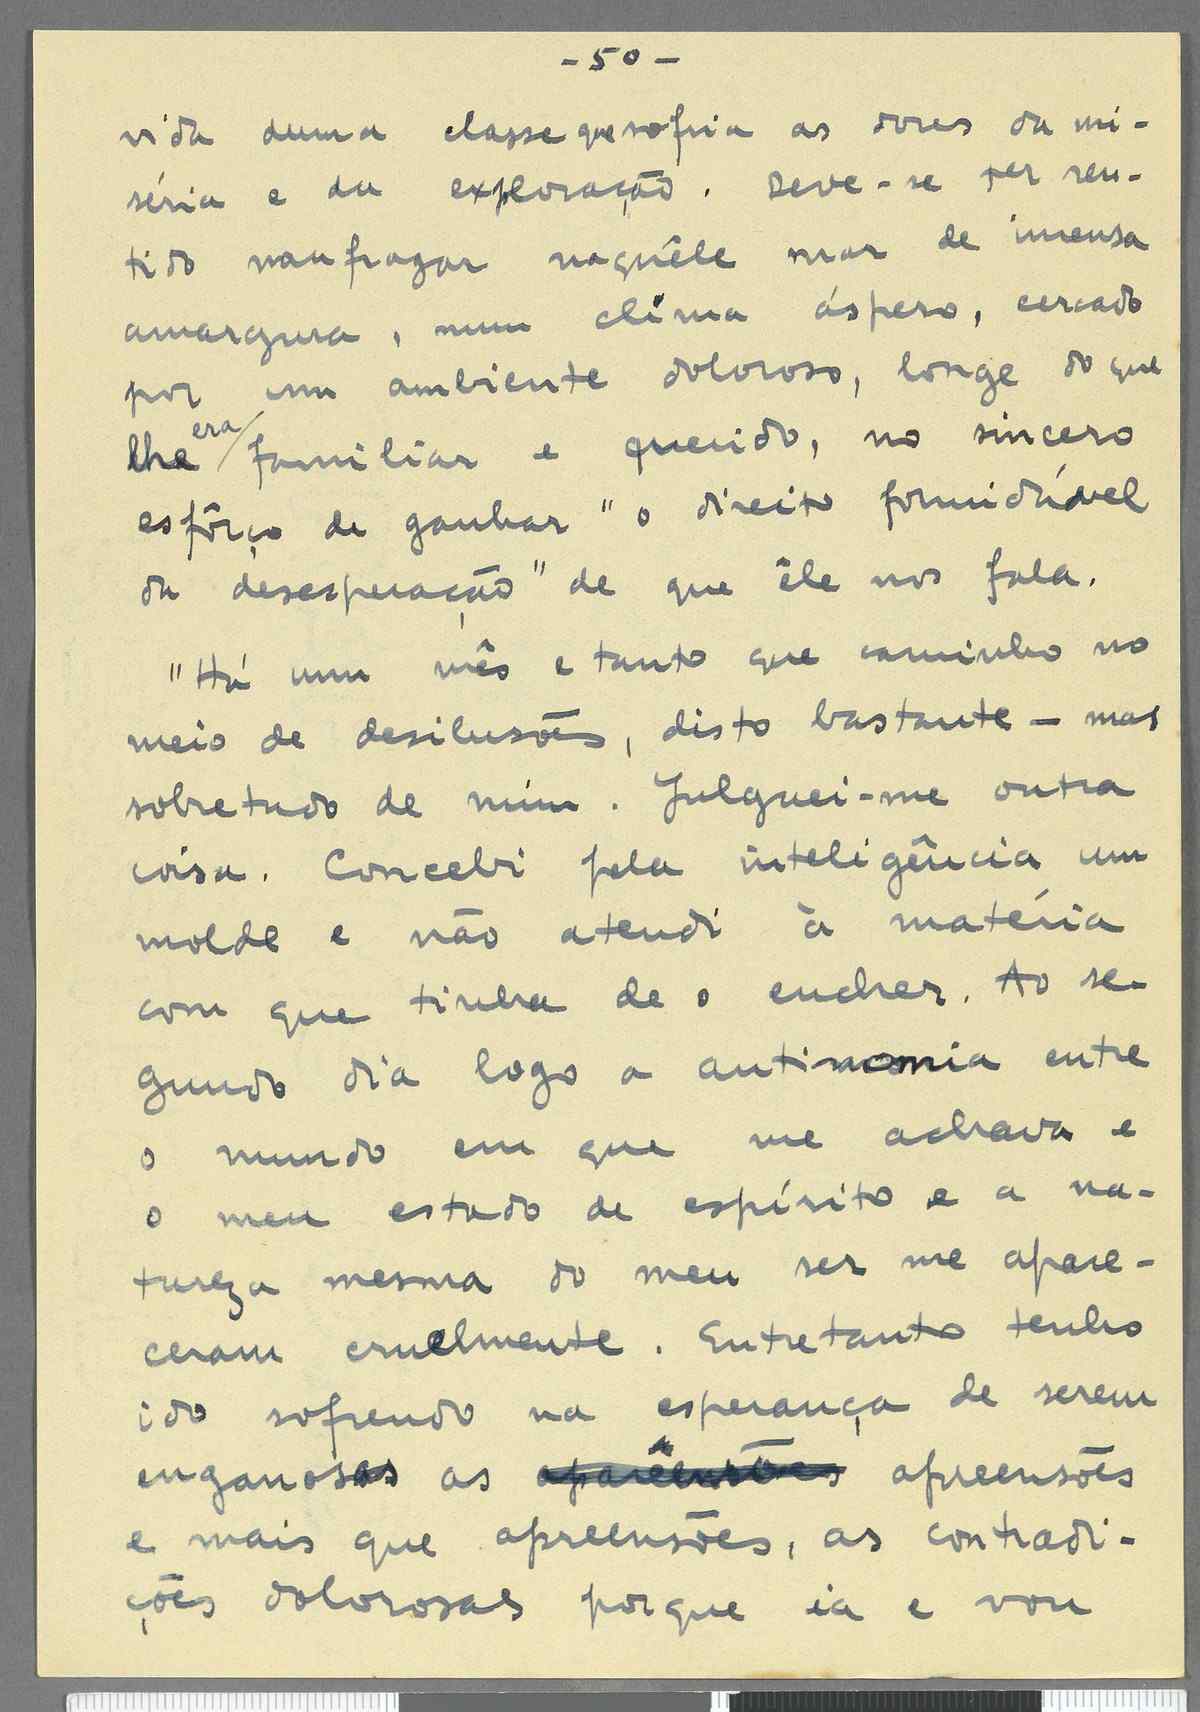 - 50 -
vida duma classe que sofria as dores da mi-
séria e da exploração. Deve-se ter sen-
tido naufragar naquêle mar de imensa
amargura, num clima áspero, cercado
por um ambiente doloroso, longe do que
lhe era familiar e querido, no sincero
esfôrço de ganhar "o direito formidável
da desesperação" de que êle nos fala.
"Há um mês e tanto que caminho no
meio de desilusões, disto bastante - mas
sobretudo de mim. Julguei-me outra
coisa. Concebi pela inteligência um
molde e não atendi à matéria
com que tinha de o encher. Ao se-
gundo dia logo a antinomia entre
o mundo em que me achava e
o meu estado de espírito e a na-
tureza mesma do meu ser me apare-
ceram cruelmente. Entretanto tenho
ido sofrendo na esperança de serem
enganosas as apreensões
e mais que apreensões, as contradi-
ções dolorosas porque ia e vou